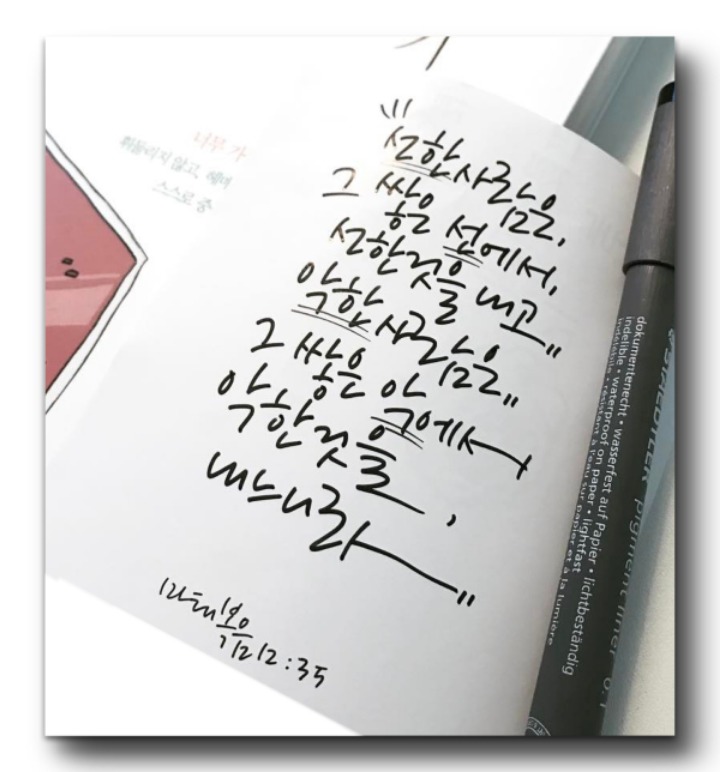 너무 가
휘둘리지 않고, 헤매
스스로 중
선한 사람은
그 쌓은 선에서,
선한것을 내고
악한 사람은
그 쌓은 악에서
악한것을,
내느니라
마태복음 12:35
STAEDTLER pigment liner 0.1
dokumentenecht • wasserfest auf Papier • lichtbeständig
indelible • waterproof on paper • lightfast
indélébile • résistant à l'eau sur papier et à la lumière